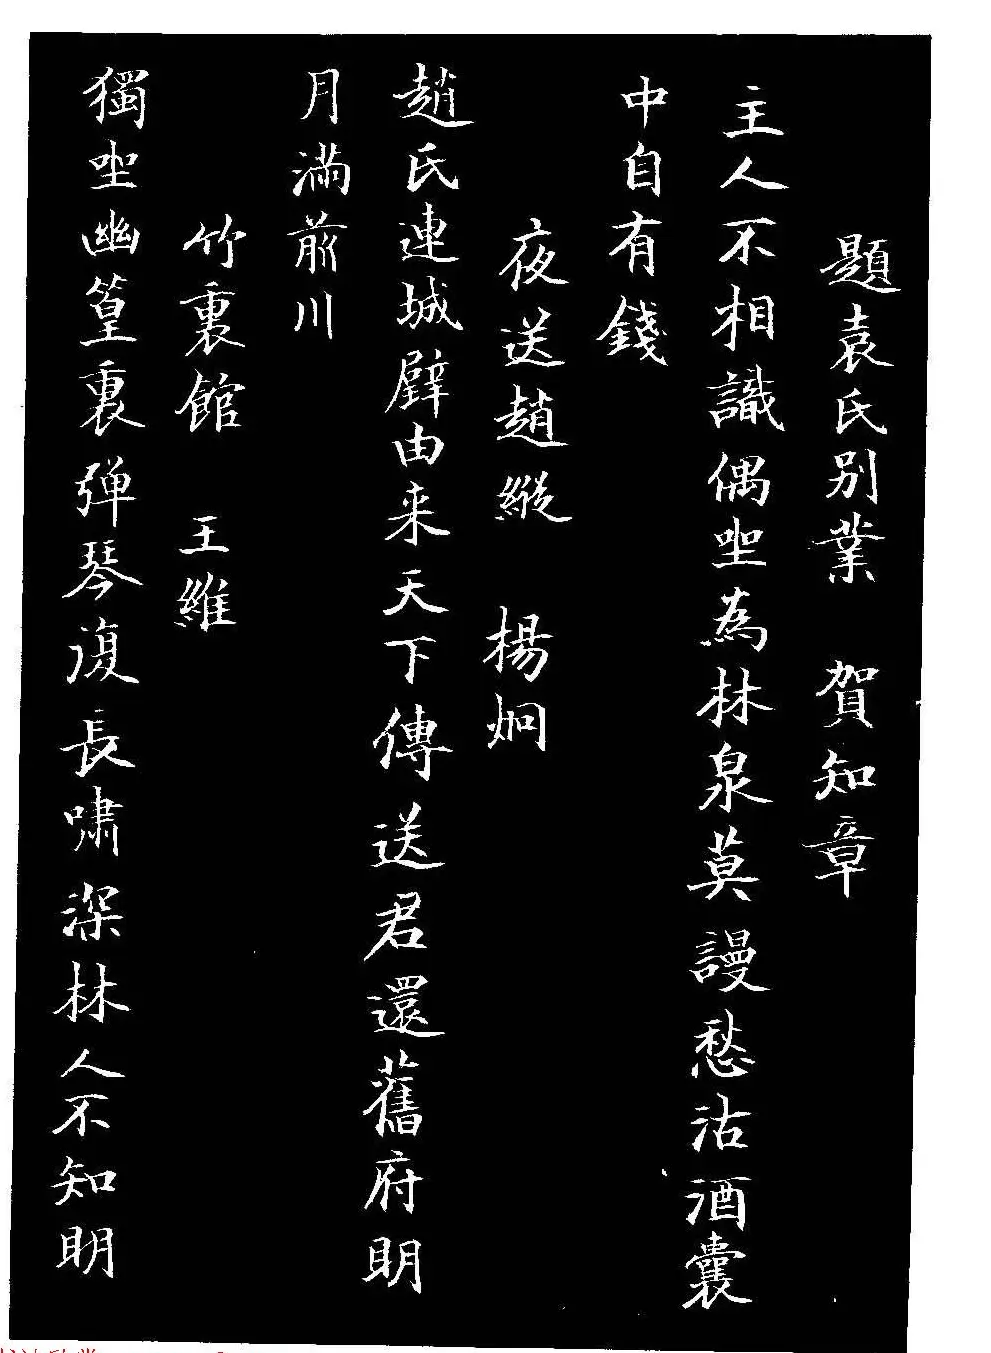 題袁氏別業 賀知章
主人不相識偶坐為林泉莫謾愁沽酒囊
中自有錢
夜送趙縱 楊炯
趙氏連城璧由来天下傳送君還舊府明
月滿前川
竹裏館 王維
獨坐幽篁裏弾琴復長嘯深林人不知明